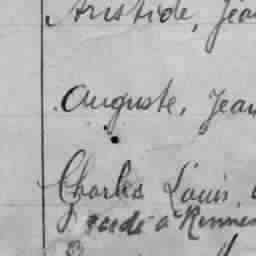 Aristide, Jea
Auguste, Jean
Charles Louis,
à Rennes